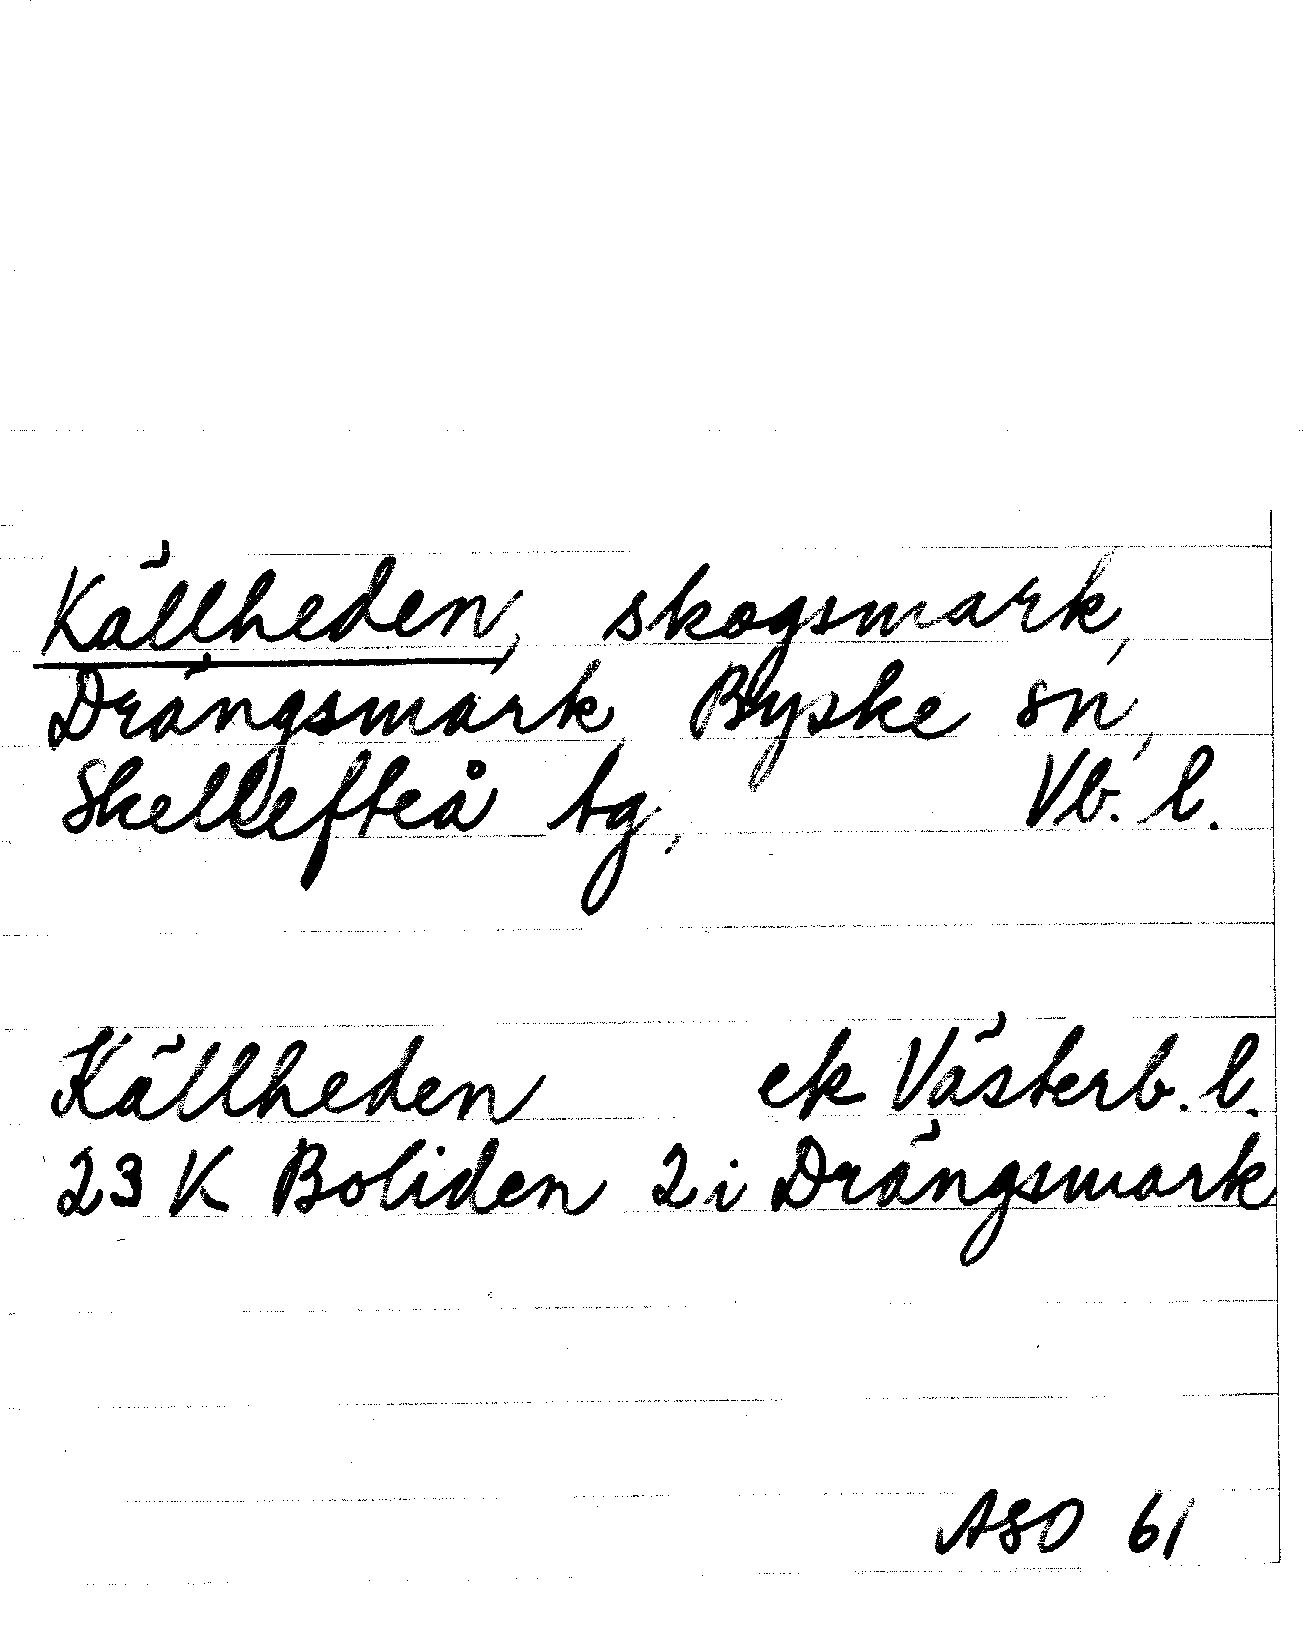 Källheden, skogsmark,
Drängsmark, Byske sn,
Skellefteå tg, Vb. l.
Källheden ek Västerb. l.
23 K Boliden 2 i Drängsmark
ASO 61